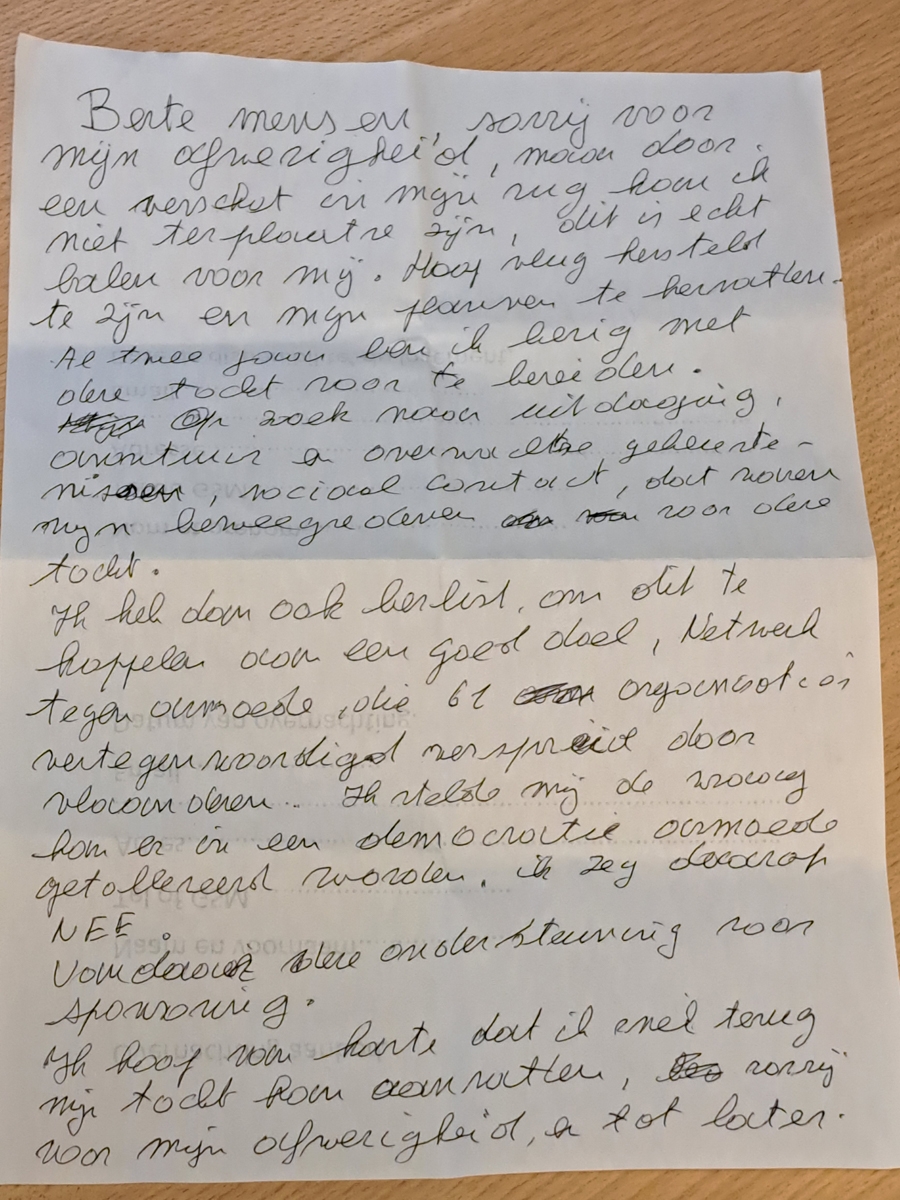 Beste mensen, sorrij voor
mijn afwezigheid, maar door
een verschot in mijn rug kan ik
niet terplaatse zijn, dit is echt
balen voor mij. Hoop vlug hersteld
te zijn en mijn plannen te hervatten.
Al twee jaar ben ik bezig met
deze tocht voor te bereiden.
Op zoek naar uitdaging,
avontuur en overwachtse gebeurte-
nissen, sociaal contact, dat waren
mijn beweegredenen voor deze
tocht.
Ik heb dan ook beslist, om dit te
koppelen aan een goed doel, Netwerk
tegen armoede, die 61 organisaties
vertegenwoordigd verspreid door
vlaanderen. Ik stelde mij de vraag
kan er in een democratie armoede
getollereerd worden, ik zeg daarop
NEE.
Vandaar deze ondersteuning voor
sponsoring.
Ik hoop van harte dat ik snel terug
mijn tocht kan aanvatten, sorrij
voor mijn afwezigheid, en tot later.
Datum van overnachting
Email
Adres
Tel of GSM
Naam en voornaam